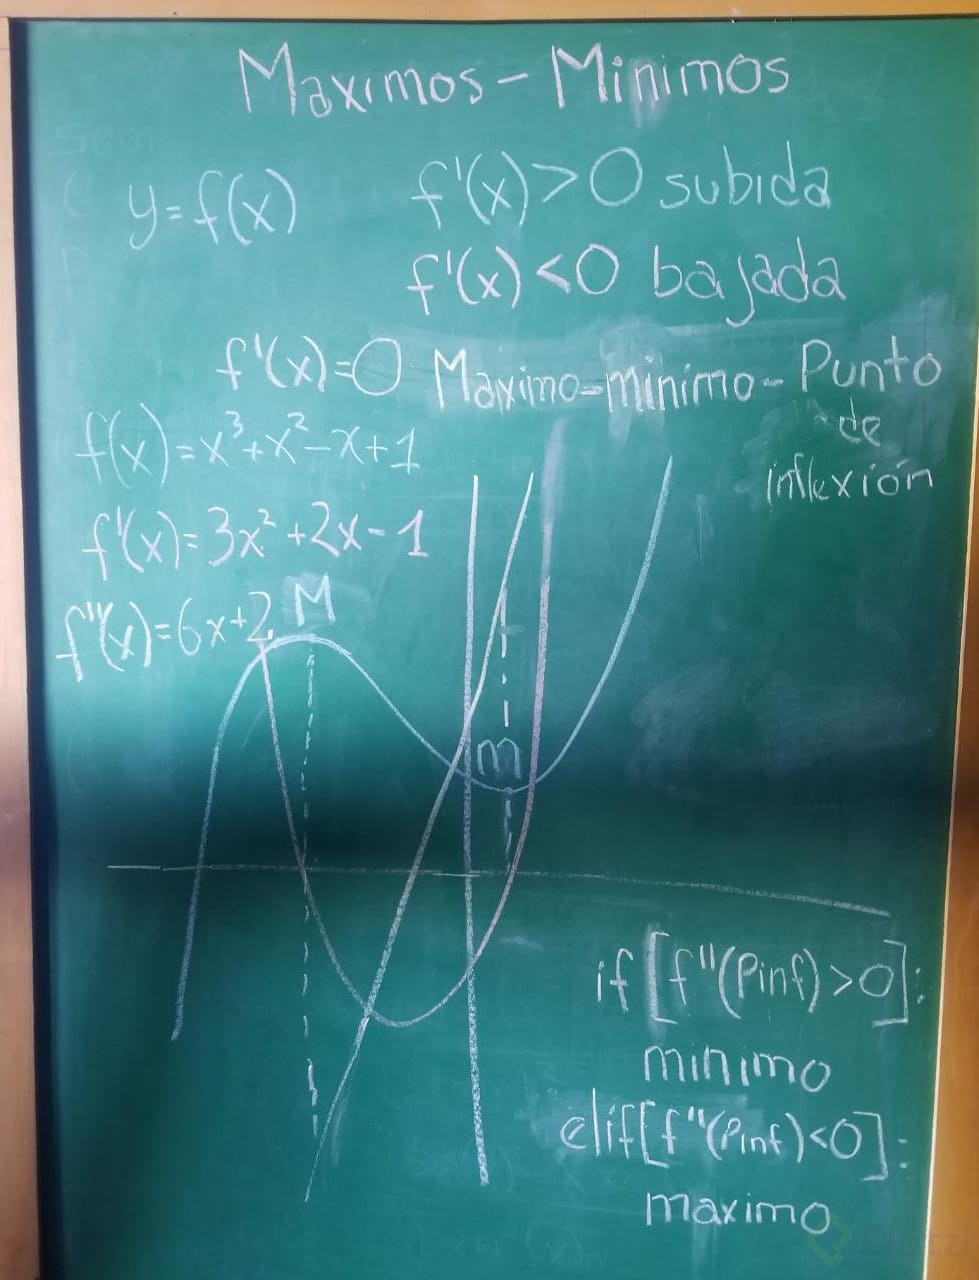 Maximos - Minimos
y=f(x)
f'(x)>0 subida
f'(x)<0 bajada
f'(x)=0 Maximo-minimo- Punto
de
inflexión
f(x)=x³+x²-x+1
f'(x)=3x²+2x-1
f''(x)=6x+2
M
m
if [f''(Pinf)>0]:
minimo
elif[f''(Pinf)<0]:
maximo